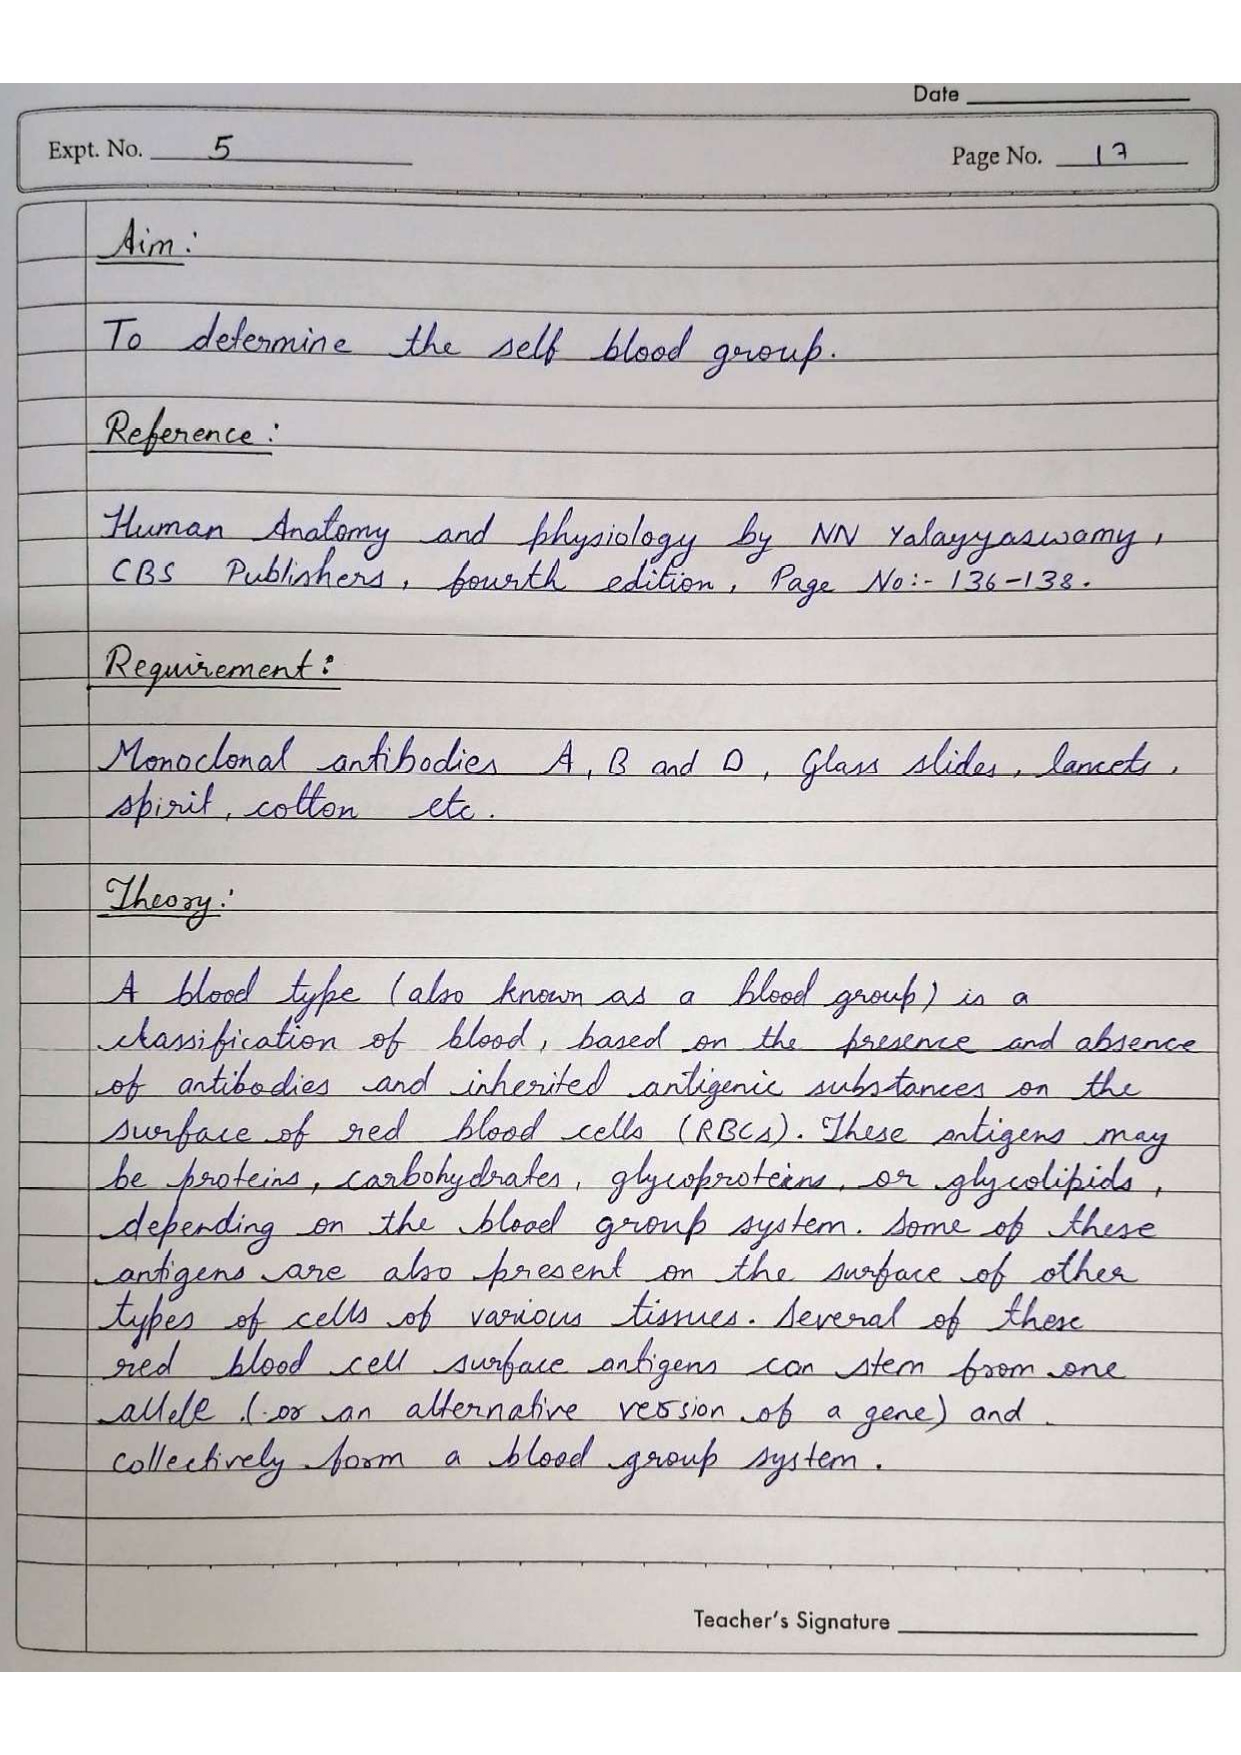 Date
Expt. No. 5
Page No. 17
Aim:
To determine the self blood group.
Reference:
Human Anatomy and physiology by NN Yalayyaswamy,
CBS Publishers, fourth edition, Page No:- 136-138.
Requirement:
Monoclonal antibodies A, B and D, Glass slides, lancets,
spirit, cotton etc.
Theory:
A blood type (also known as a blood group) is a
classification of blood, based on the presence and absence
of antibodies and inherited antigenic substances on the
surface of red blood cells (RBCs). These antigens may
be proteins, carbohydrates, glycoproteins, or glycolipids,
depending on the blood group system. Some of these
antigens are also present on the surface of other
types of cells of various tissues. Several of these
red blood cell surface antigens can stem from one
allele (or an alternative version of a gene) and
collectively form a blood group system.
Teacher's Signature